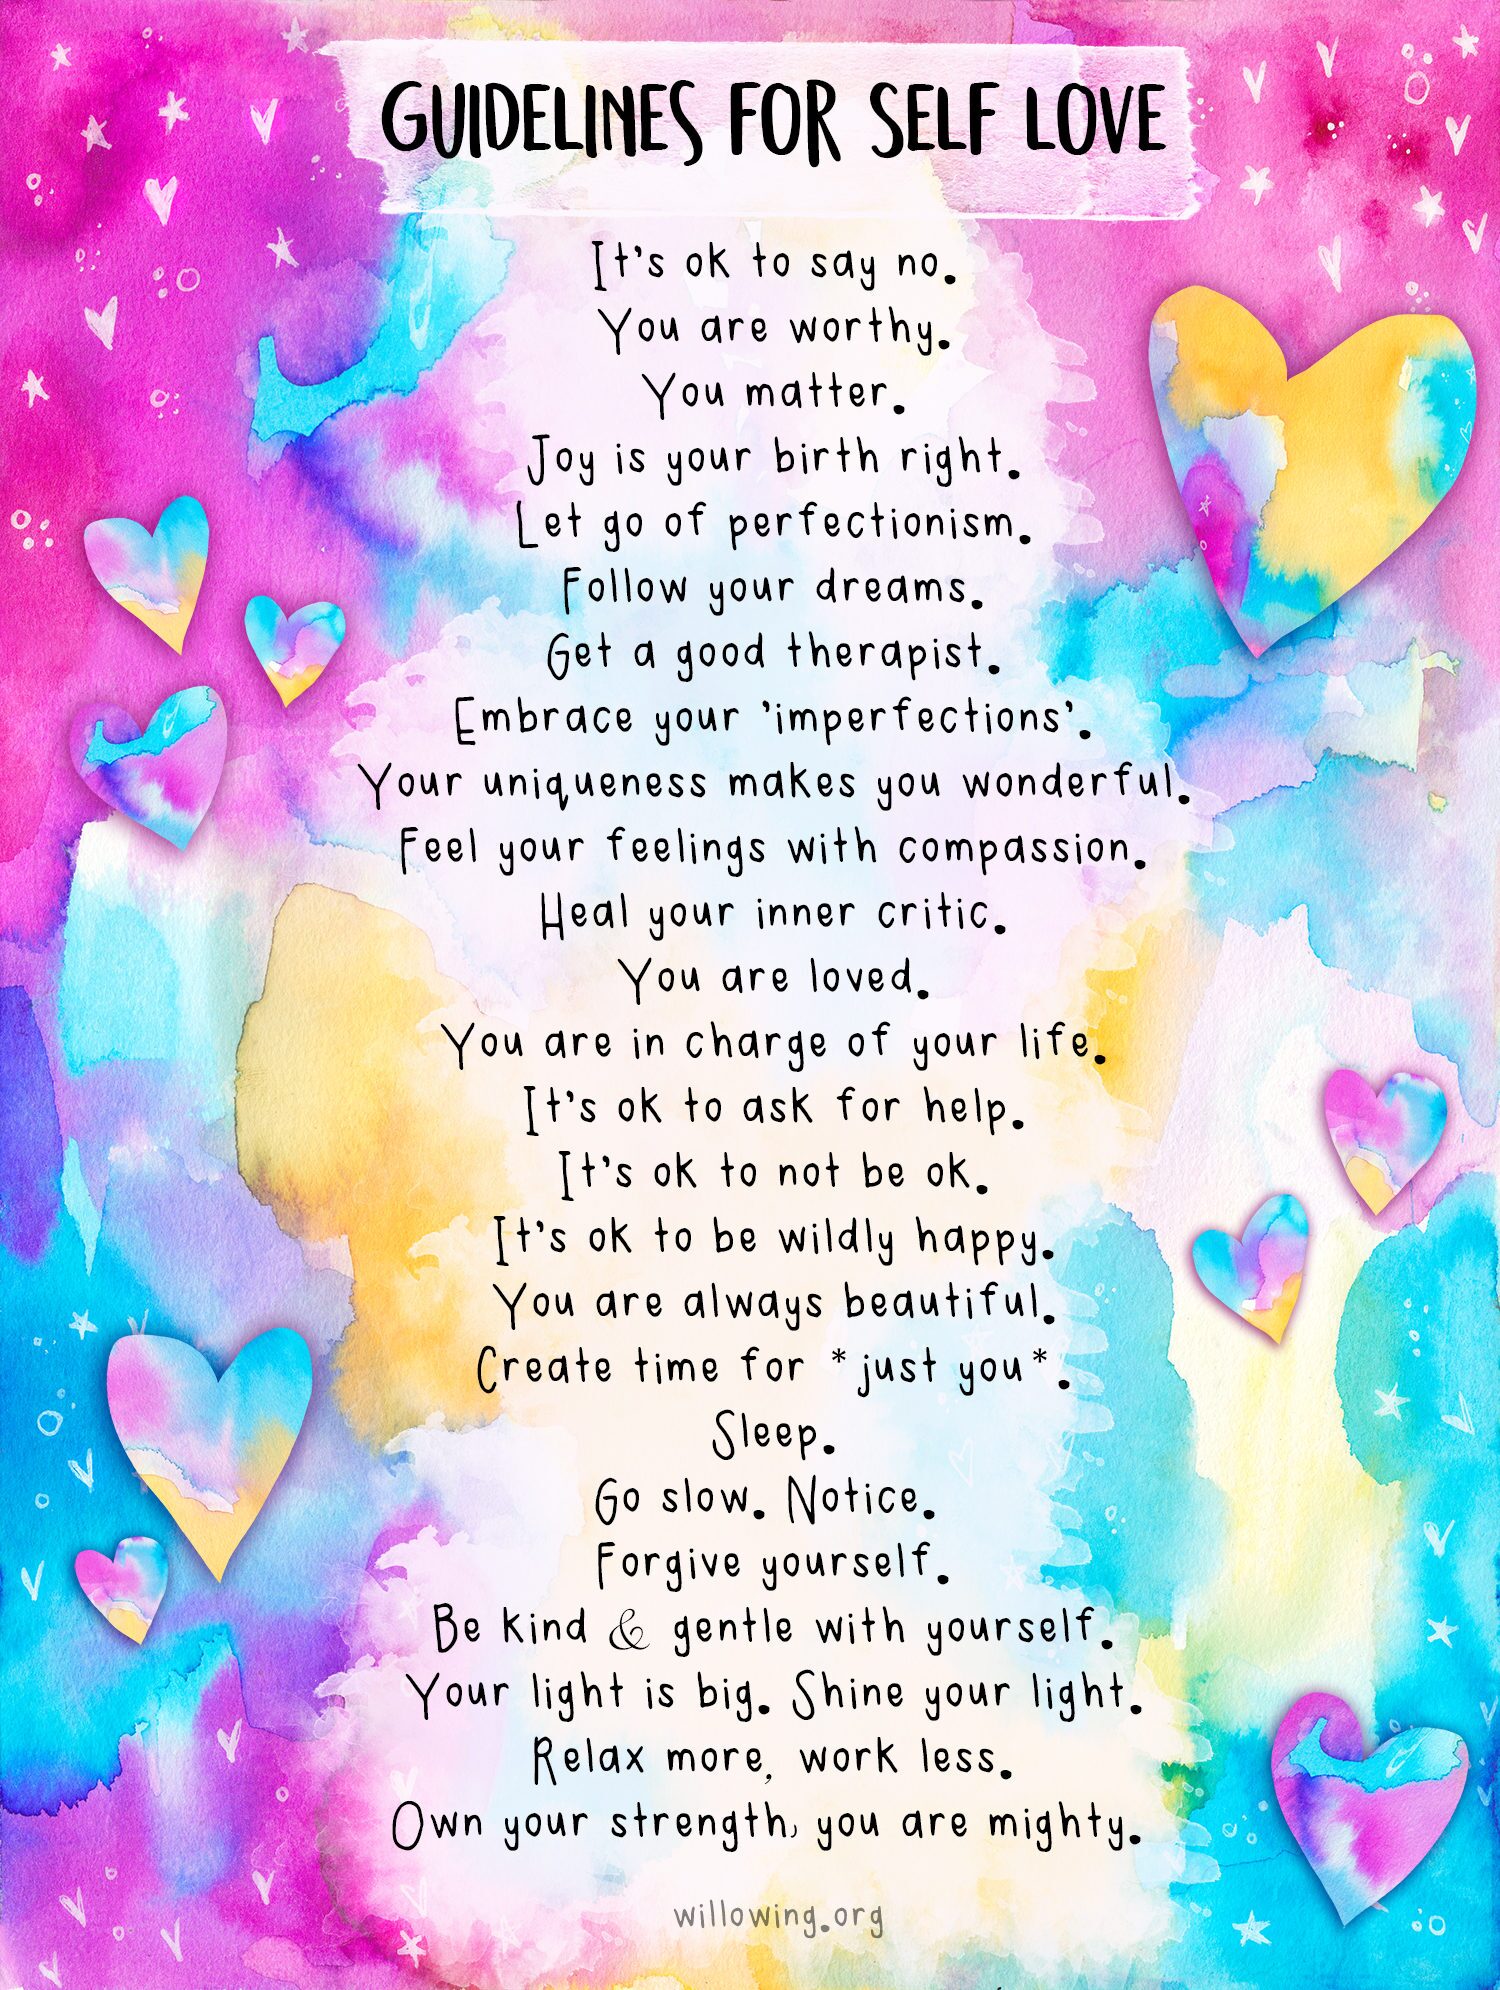 GUIDELINES FOR SELF LOVE
It's ok to say no.
You are worthy.
You matter.
Joy is your birth right.
Let go of perfectionism.
Follow your dreams.
Get a good therapist.
Embrace your 'imperfections'.
Your uniqueness makes you wonderful.
Feel your feelings with compassion.
Heal your inner critic.
You are loved.
You are in charge of your life.
It's ok to ask for help.
It's ok to not be ok.
It's ok to be wildly happy.
You are always beautiful.
Create time for *just you*.
Sleep.
Go slow. Notice.
Forgive yourself.
Be kind & gentle with yourself.
Your light is big. Shine your light.
Relax more, work less.
Own your strength, you are mighty.
willowing.org